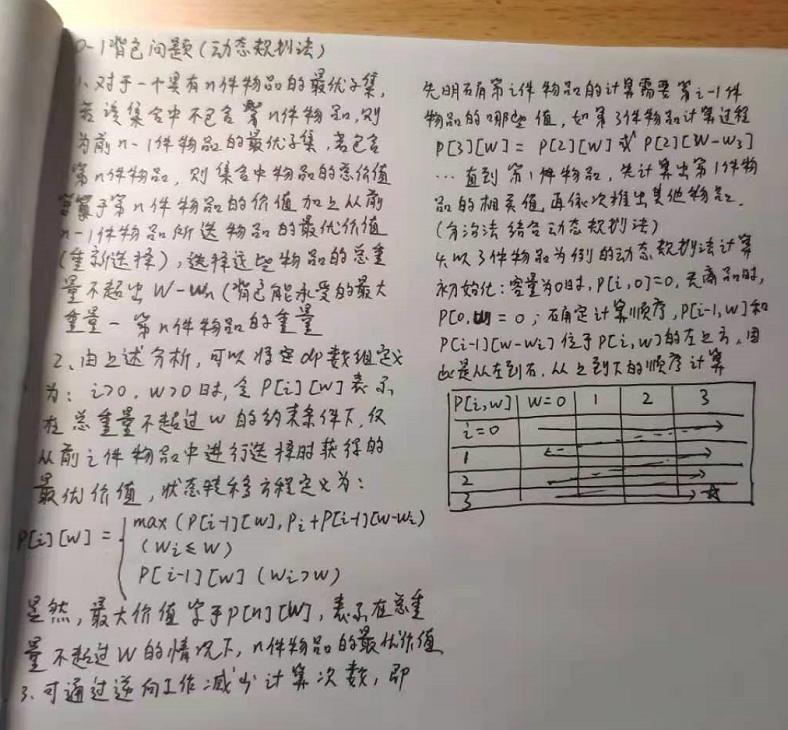 0-1背包问题(动态规划法)
1、对于一个具有n件物品的最优子集,
若该集合中不包含第n件物品,则
为前n-1件物品的最优子集,若包含
第n件物品,则集合中物品的总价值
等于第n件物品的价值加上从前
n-1件物品所选物品的最优价值
(重新选择),选择这些物品的总重
量不超出W-Wn(背包能承受的最大
重量-第n件物品的重量
2、由上述分析,可以将定dp数组定义
为:i>0,w>0时,令P[i][w]表示
在总重量不超过w的约束条件下,仅
从前i件物品中进行选择时获得的
最优价值,状态转移方程定义为:
P[i][w]={max(P[i-1][w],Pi+P[i-1][w-wi)
(wi≤w)
P[i-1][w](wi>w)
显然,最大价值等于P[n][W],表示在总重
量不超过W的情况下,n件物品的最优价值
3、可通过逆向工作减少计算次数,即
先明确第i件物品的计算需要第i-1件
物品的哪些值,如第3件物品计算过程
P[3][W]=P[2][W]或P[2][W-W3]
…直到第1件物品,先计算出第1件物
品的相关值,再依次推出其他物品.
(分治法结合动态规划法)
4、以3件物品为例的动态规划法计算
初始化:容量为0时,P[i,0]=0,无商品时,
P[0,w=0;确定计算顺序,P[i-1,w]和
P[i-1][w-wi)位于P[i,w)的左上方,因
此是从左到右,从上到下的顺序计算
P[i,w] W=0 1 2 3
i=0
1
2
3